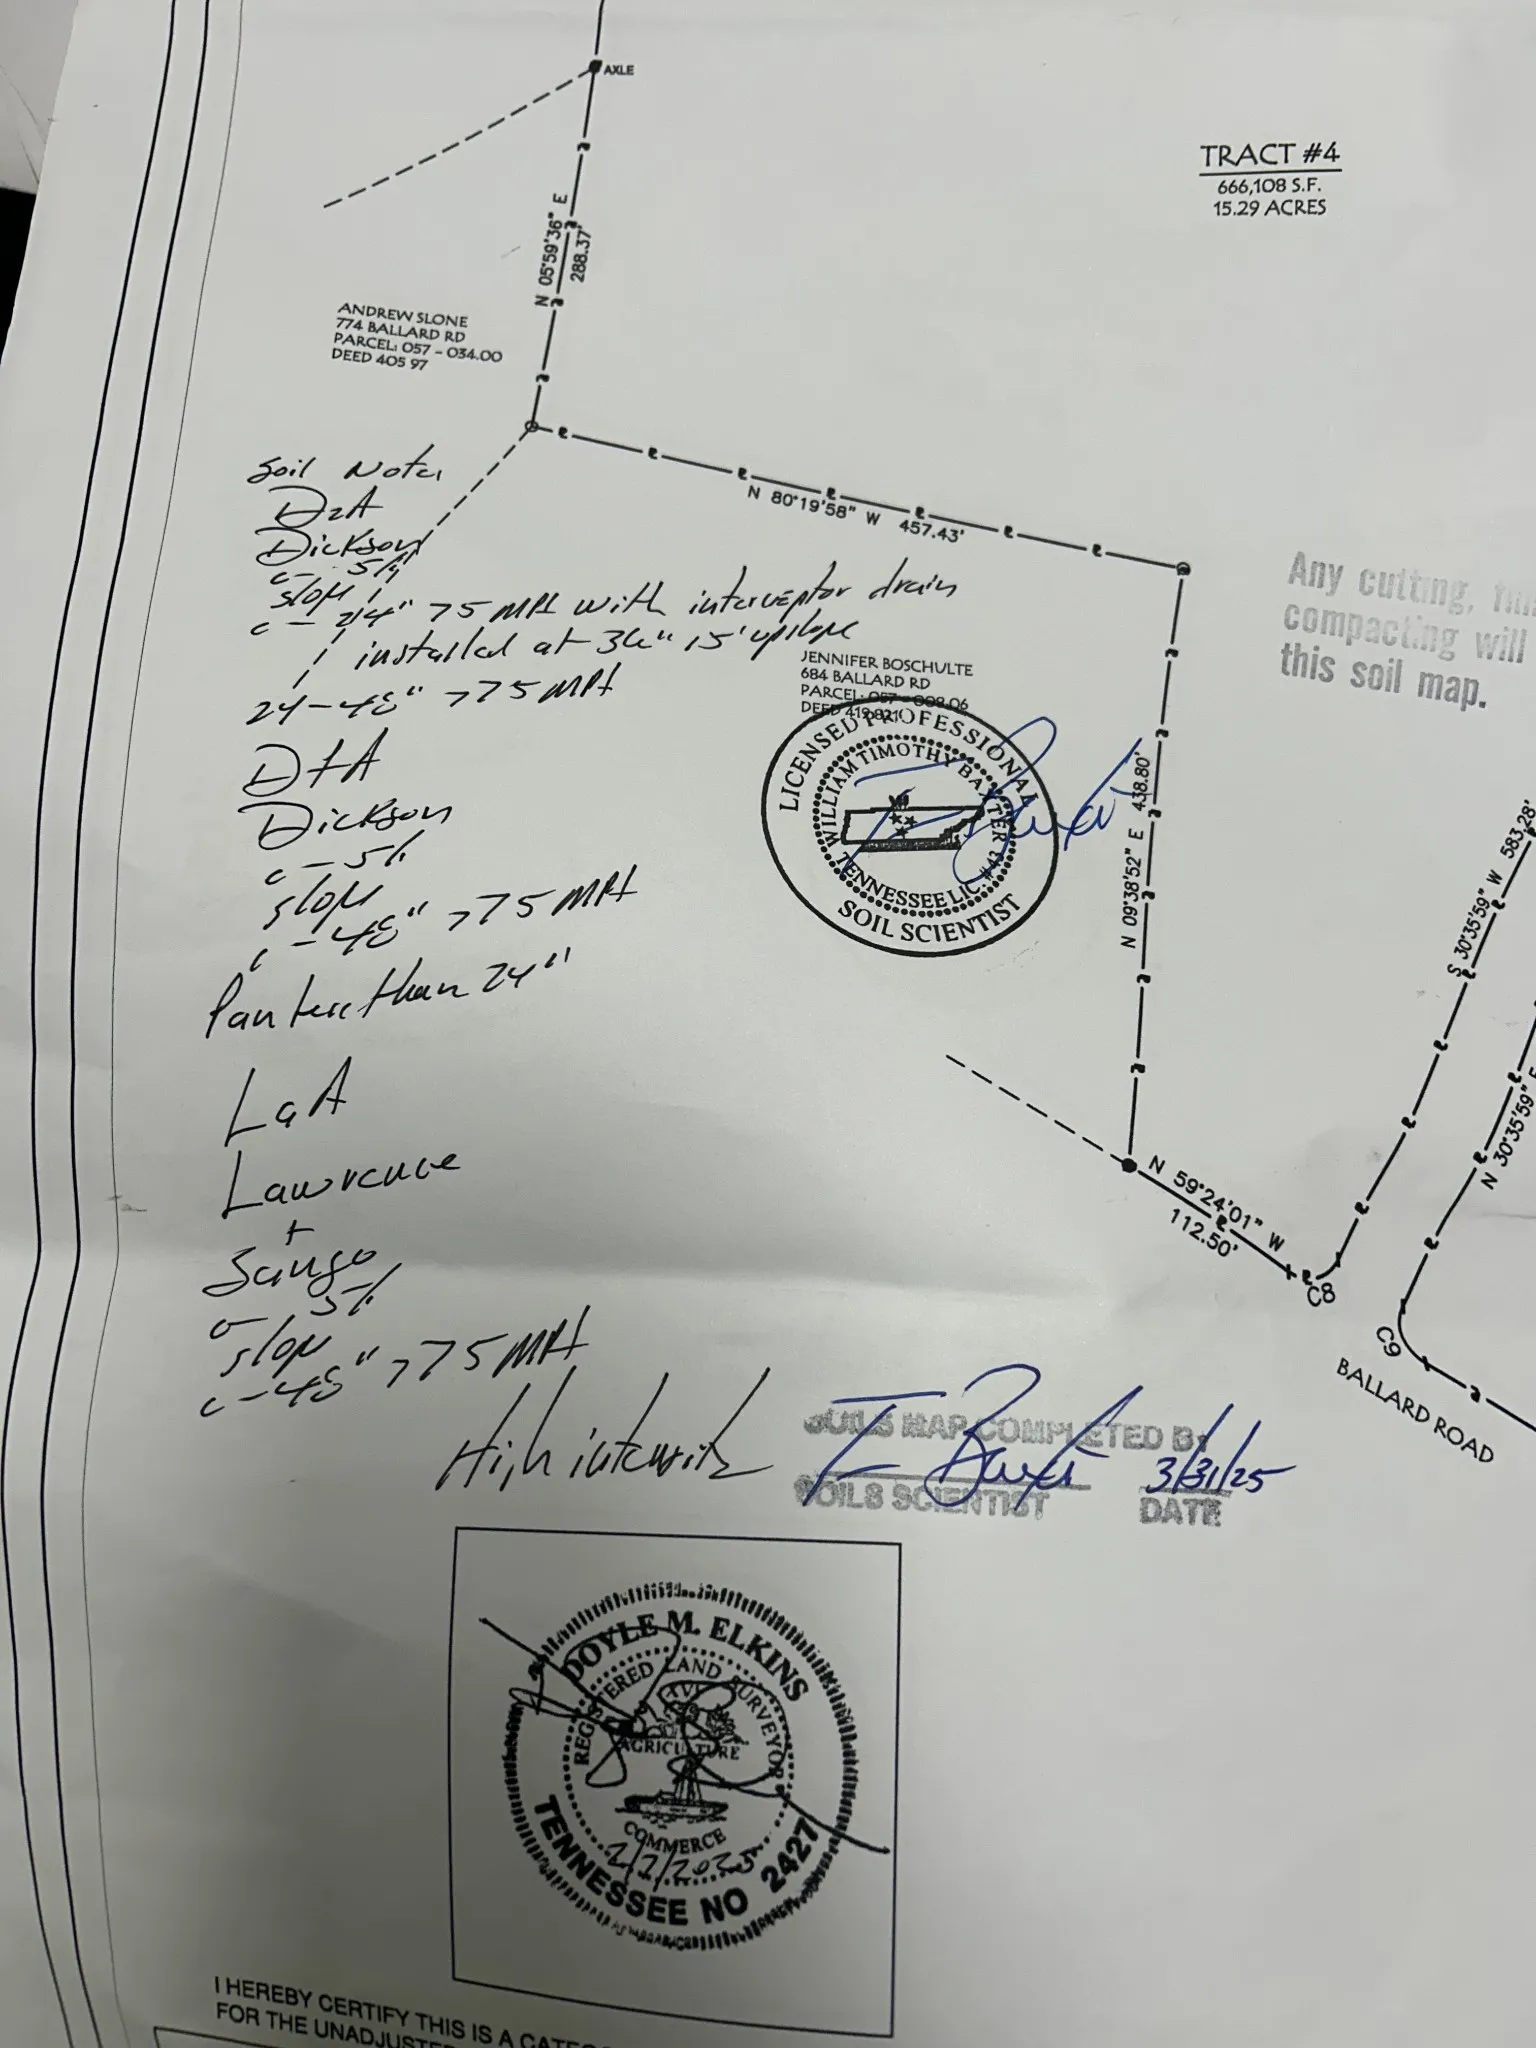 AXLE
TRACT #4
666,108 S.F.
15.29 ACRES
N 05°59'36" E
288.37'
ANDREW SLONE
774 BALLARD RD
PARCEL: 057 - 034.00
DEED 405 97
N 80°19'58" W 457.43'
Soil Notes
DzA
Dickson
0-5%
slope
0-24" 75 MPI with interceptor drain
installed at 36" 15' upslope
24-48" >75 MPI
D1A
Dickson
0-5%
slope
0-48" >75 MPI
Pan less than 24"
LaA
Lawrence
+
Sango
0-5%
slope
0-48" >75 MPI
High intensity
JENNIFER BOSCHULTE
684 BALLARD RD
PARCEL: 057 - 009.06
DEED 419 821
LICENSED PROFESSIONAL
WILLIAM TIMOTHY BAXTER
TENNESSEE LIC. #43
SOIL SCIENTIST
Any cutting,
compacting will
this soil map.
N 09°38'52" E 438.80'
S 30°35'59" W 583.28'
N 30°35'59" E
N 59°24'01" W
112.50'
C8
C9
BALLARD ROAD
SOILS MAP COMPLETED BY
3/31/25
SOILS SCIENTIST
DATE
DOYLE M. ELKINS
REGISTERED LAND SURVEYOR
AGRICULTURE
COMMERCE
2/7/2025
TENNESSEE NO 2427
I HEREBY CERTIFY THIS IS A
FOR THE